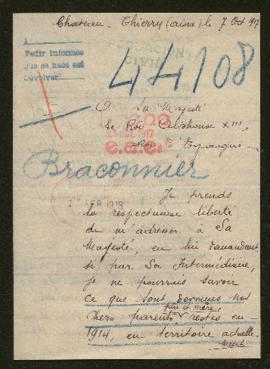 Chateau-Thierry (aisne) le 7 Oct 19
Pedir informes
44108
A Sa Majesté
Le Roi Alphonse XIII,
Braconnier
Je prends
la respectueuse liberté
de m'adresser à Sa
Majesté, en lui demandant
si par Son Intermédiaire,
je ne pourrais savoir
ce que sont devenus nos
père et mère,
chers parents restés en
1914, en territoire actuelle-
ment